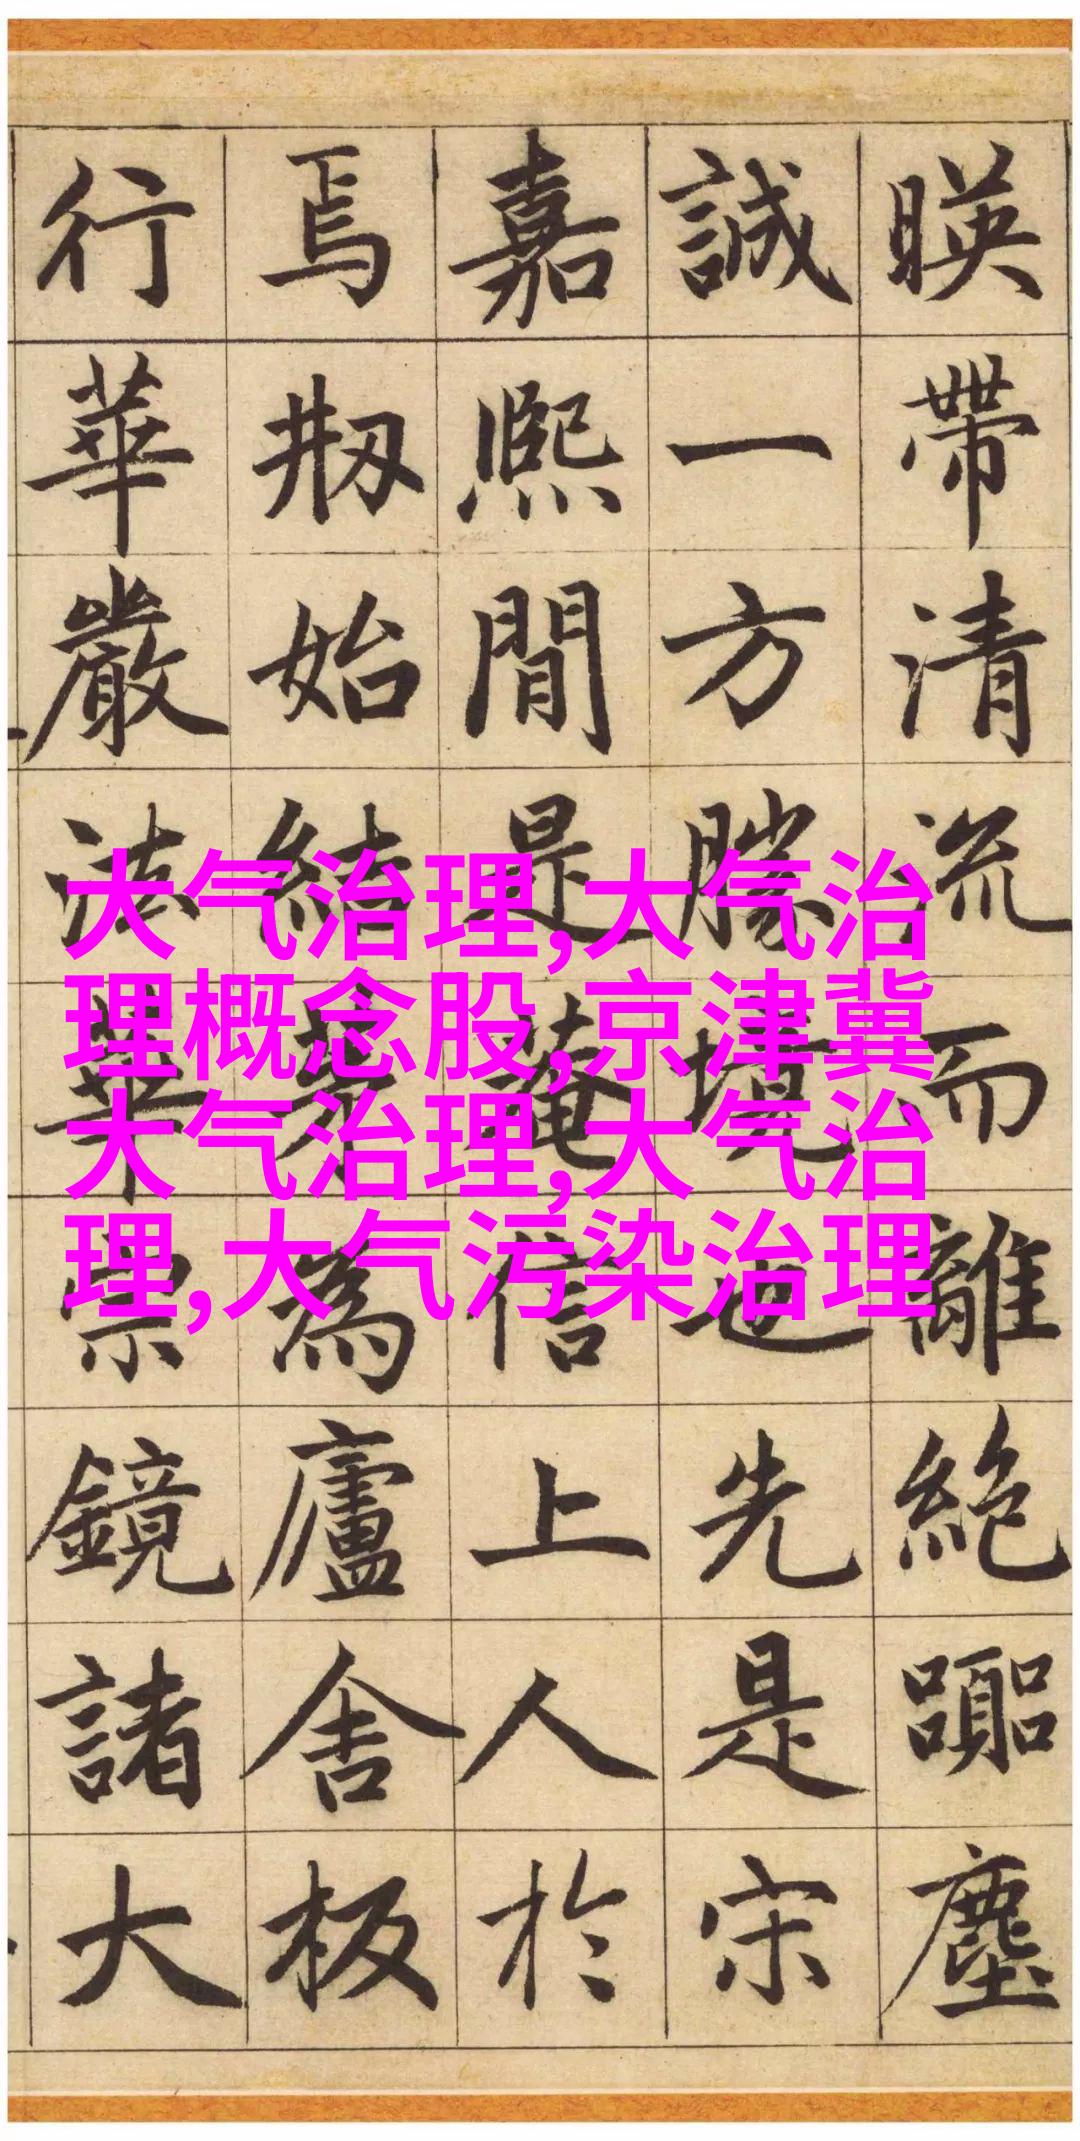 暎帶清流而離絕嚻塵
誠一方勝境也先是宋
嘉熈間是菴信上人於
焉刱始結茅為廬舍板
行華嚴法華宗鏡諸大
大气治理,大气治
理概念股,京津冀
大气治理,大气治
理,大气污染治理